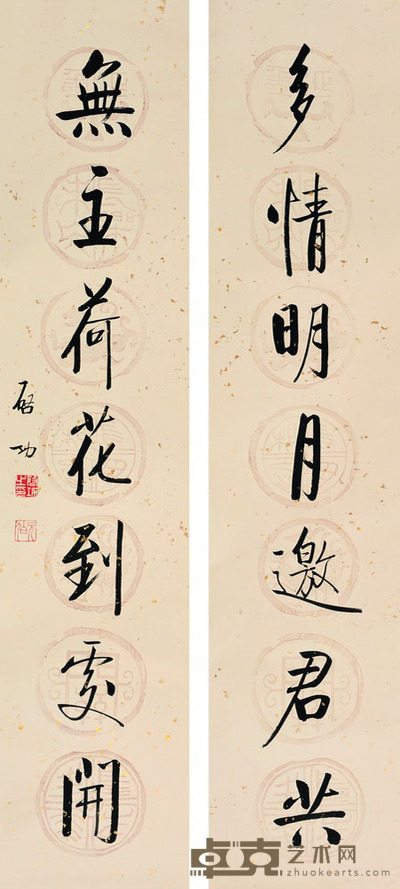 多情明月邀君共
無主荷花到處開
啟功
卓克艺术网
zhuokearts.com